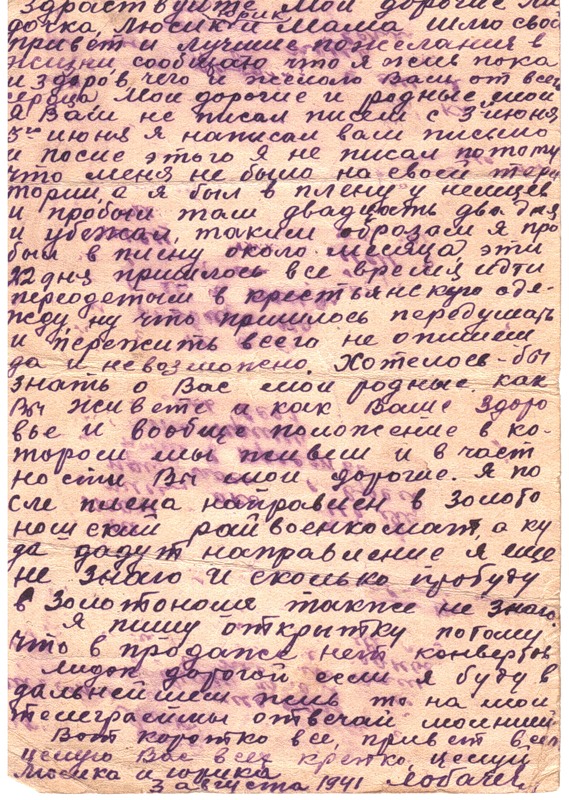 Здравствуйте мои дорогие Ли
дочка, Люсик и Мама шлю свой
Юрик
привет и лучшие пожелания в
жизни сообщаю что я жив пока
и здоров, чего и желаю Вам от всего
сердца. Мои дорогие и родные мои
я Вам не писал писем с 3 июня
5го июня я написал вам письмо
и после этого я не писал потому
что меня не было на своей тери
тории а я был в плену у немцев
и пробыл там двадцать два дня
и убежал, таким образом я про
был в плену около месяца, эти
22 дня пришлось все время идти
переодетым в крестьянскую оде-
жду ну что пришлось передумать
и пережить всего не опишеш
да и невозможно. Хотелось-бы
знать о Вас мои родные. как
Вы живете и как Ваше здоро
вье и вообще положение в ко-
тором мы живем и в част
ности Вы мои дорогие. Я по
сле плена направлен в Золото
ношский райвоенкомат, а ку
да дадут направление я еще
не знаю и сколько пробуду
в Золотоноше также не знаю
Я пишу открытку потому
что в продаже нет конвертов
Лидок дорогой если я буду в
дальнейшем жив то на мои
телеграммы отвечай молнией
Вот коротко все, привет всем
целую Вас всех крепко, целуй
Люсика и Юрика
3 августа 1941